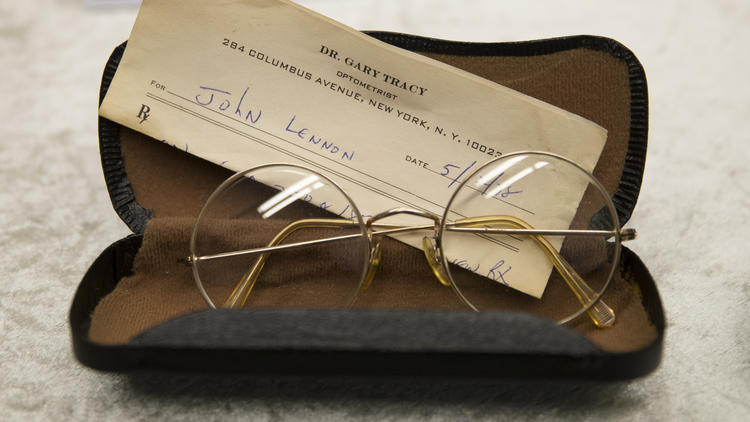 DR. GARY TRACY
OPTOMETRIST
284 COLUMBUS AVENUE, NEW YORK, N. Y. 10023
FOR John LENNON
Rx
DATE 5/
Rx